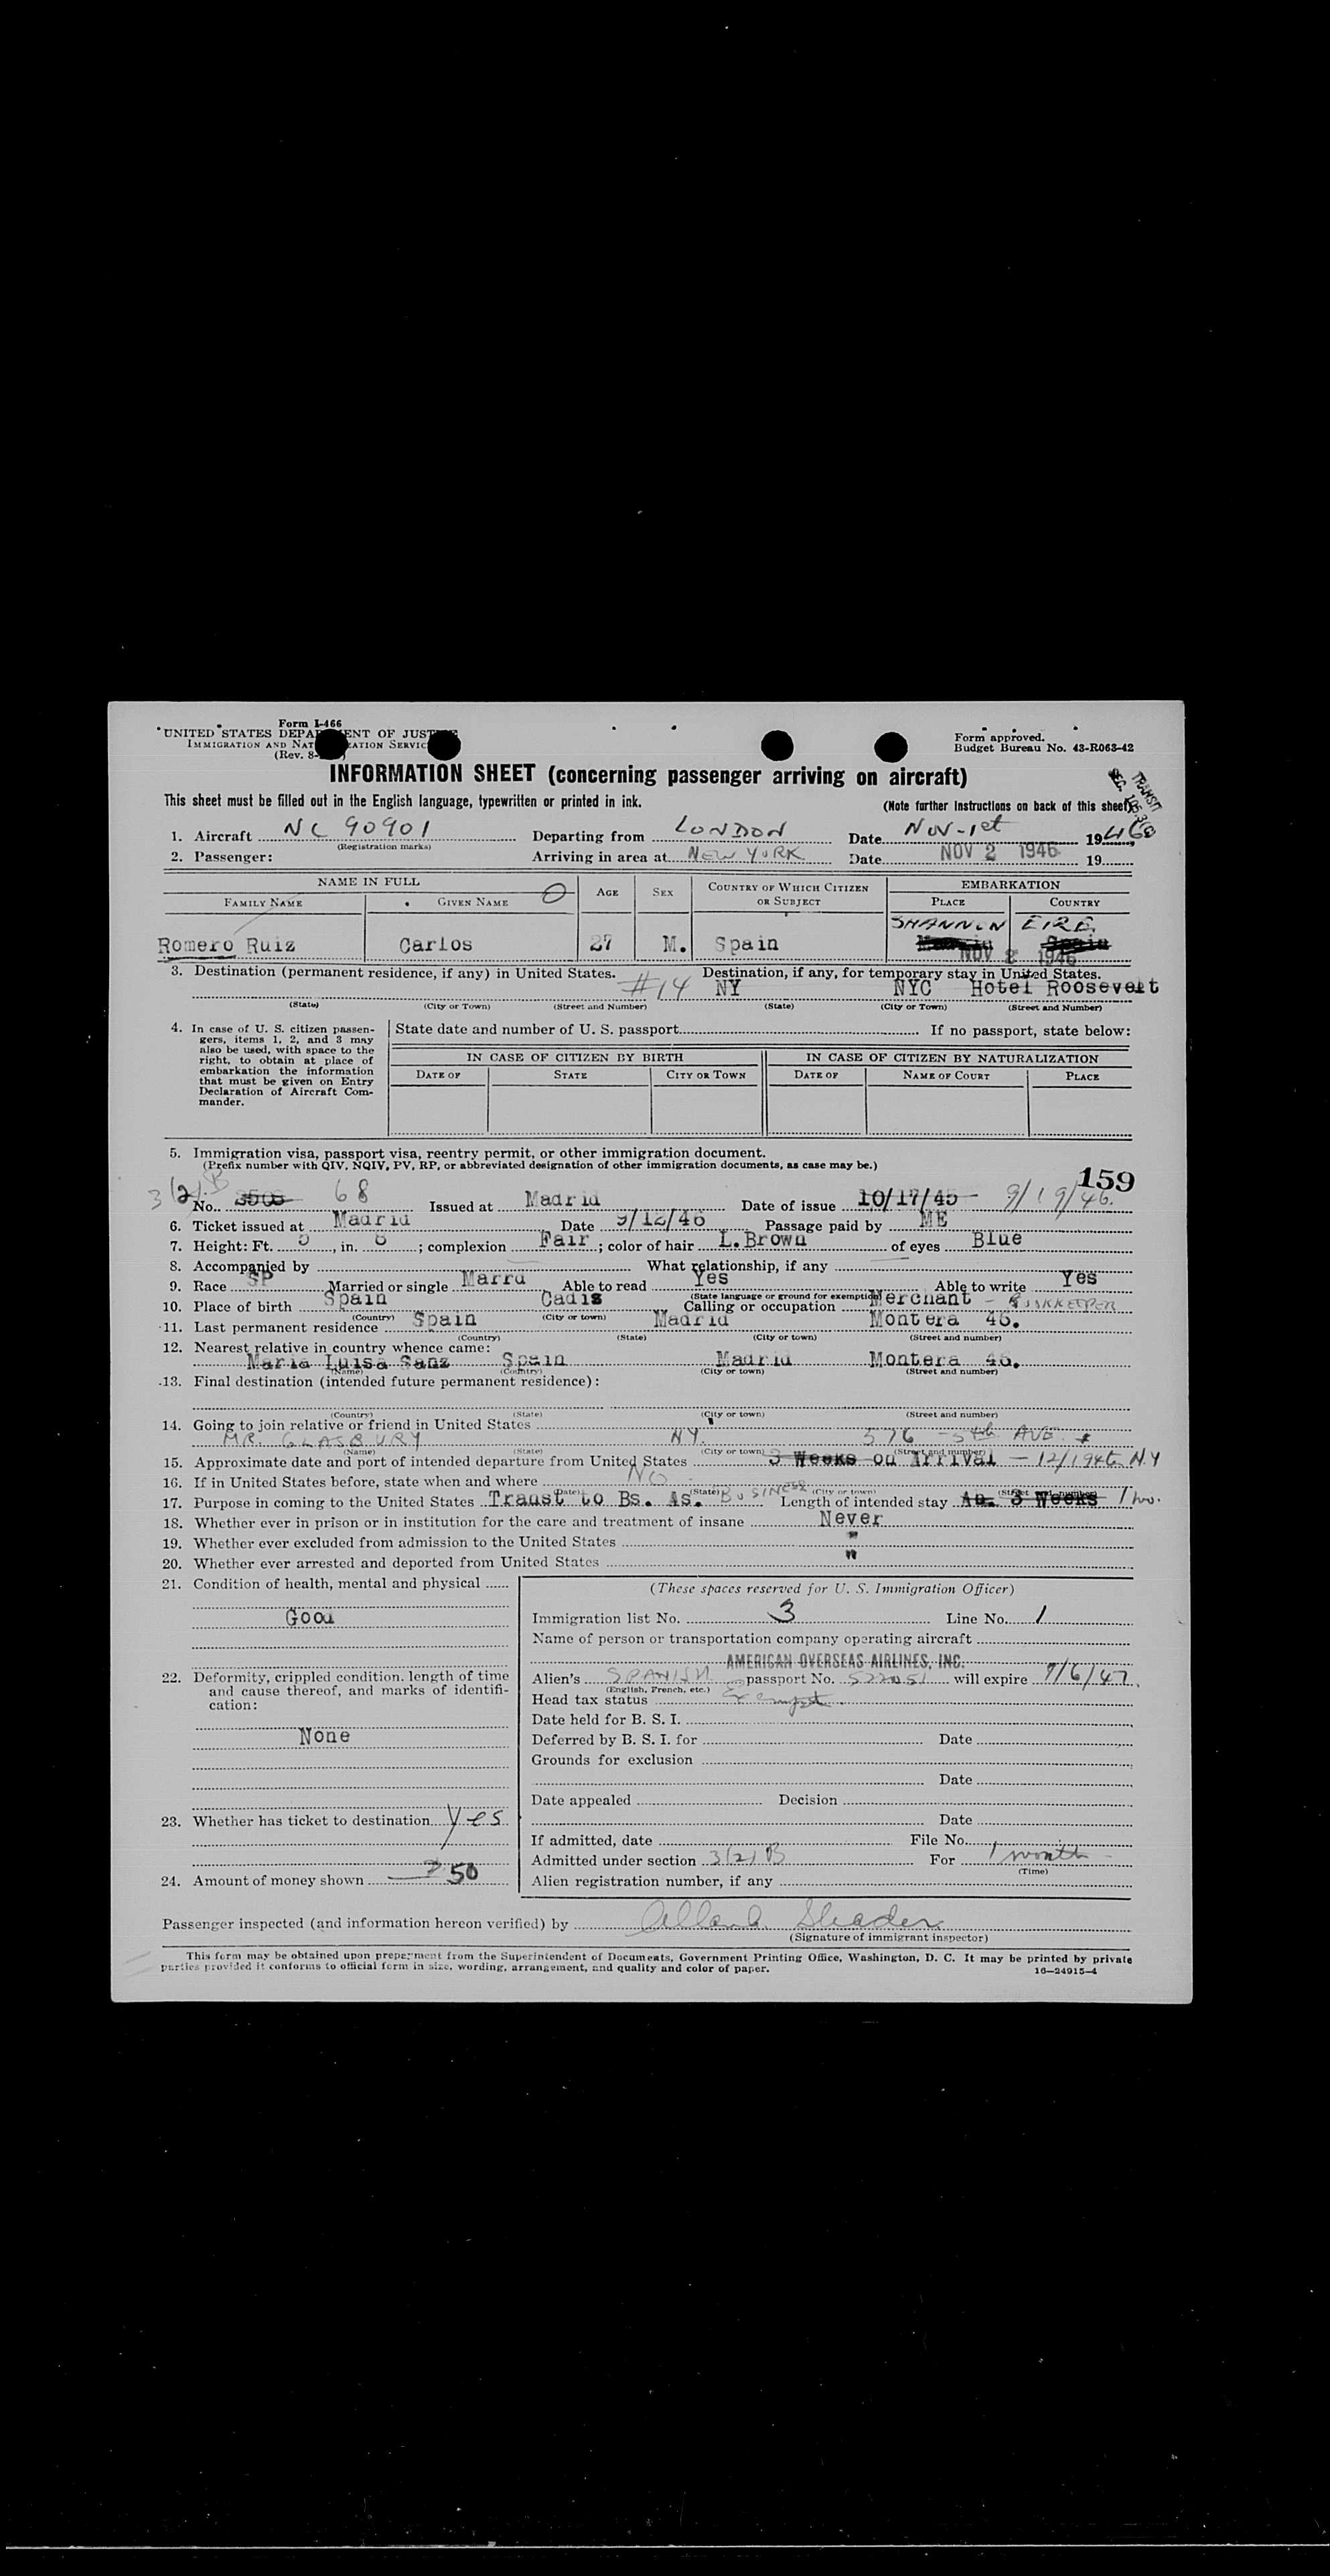 Form I-466
UNITED STATES DEPARTMENT OF JUSTICE
IMMIGRATION AND NATURALIZATION SERVICE
(Rev. 8-
Form approved.
Budget Bureau No. 43-R063-42
INFORMATION SHEET (concerning passenger arriving on aircraft)
TRANSIT
This sheet must be filled out in the English language, typewritten or printed in ink. (Note further instructions on back of this sheet)
1. Aircraft NC 90901 Departing from LONDON Date Nov-1st 1946
(Registration marks)
2. Passenger: Arriving in area at NEW YORK Date NOV 2 1946 19
NAME IN FULL AGE SEX COUNTRY OF WHICH CITIZEN OR SUBJECT EMBARKATION
FAMILY NAME GIVEN NAME PLACE COUNTRY
SHANNON EIRE
Romero Ruiz Carlos 27 M. Spain Madrid Spain
NOV 2 1946
3. Destination (permanent residence, if any) in United States. Destination, if any, for temporary stay in United States.
#14 NY NYC Hotel Roosevelt
(State) (City or Town) (Street and Number) (State) (City or Town) (Street and Number)
4. In case of U. S. citizen passengers, items 1, 2, and 3 may also be used, with space to the right, to obtain at place of embarkation the information that must be given on Entry Declaration of Aircraft Commander.
State date and number of U. S. passport If no passport, state below:
IN CASE OF CITIZEN BY BIRTH IN CASE OF CITIZEN BY NATURALIZATION
DATE OF STATE CITY OR TOWN DATE OF NAME OF COURT PLACE
5. Immigration visa, passport visa, reentry permit, or other immigration document.
(Prefix number with QIV, NQIV, PV, RP, or abbreviated designation of other immigration documents, as case may be.)
159
3(2)B
No. 68 Issued at Madrid Date of issue 10/17/45 - 9/19/46.
6. Ticket issued at Madrid Date 9/12/46 Passage paid by ME
7. Height: Ft. 5, in. 6; complexion Fair; color of hair L.Brown of eyes Blue
8. Accompanied by What relationship, if any
9. Race SP Married or single Marrd Able to read Yes Able to write Yes
(State language or ground for exemption)
10. Place of birth Spain Cadis Calling or occupation Merchant - BOOKKEEPER
(Country) (City or town)
11. Last permanent residence Spain Madrid Montera 46.
(Country) (State) (City or town) (Street and number)
12. Nearest relative in country whence came:
Maria Luisa Sanz Spain Madrid Montera 46.
(Name) (Country) (City or town) (Street and number)
13. Final destination (intended future permanent residence):
(Country) (State) (City or town) (Street and number)
14. Going to join relative or friend in United States
MR. GLASBURY NY. 576 - 5th AVE.
(Name) (State) (City or town) (Street and number)
15. Approximate date and port of intended departure from United States 3 Weeks on Arrival - 12/1946 N.Y
16. If in United States before, state when and where NO
(Date) (State) (City or town) (Street and number)
17. Purpose in coming to the United States Transt to Bs. As. BUSINESS Length of intended stay Ab. 3 Weeks 1 mo.
18. Whether ever in prison or in institution for the care and treatment of insane Never
19. Whether ever excluded from admission to the United States "
20. Whether ever arrested and deported from United States "
21. Condition of health, mental and physical
Good
22. Deformity, crippled condition, length of time and cause thereof, and marks of identification:
None
23. Whether has ticket to destination Yes
24. Amount of money shown 50
(These spaces reserved for U. S. Immigration Officer)
Immigration list No. 3 Line No. 1
Name of person or transportation company operating aircraft
AMERICAN OVERSEAS AIRLINES, INC.
Alien's SPANISH passport No. will expire 9/6/47
(English, French, etc.)
Head tax status Exempt
Date held for B. S. I.
Deferred by B. S. I. for Date
Grounds for exclusion
Date
Date appealed Decision
Date
If admitted, date File No.
Admitted under section 3(2)B For 1 month
(Time)
Alien registration number, if any
Passenger inspected (and information hereon verified) by
(Signature of immigrant inspector)
This form may be obtained upon prepayment from the Superintendent of Documents, Government Printing Office, Washington, D. C. It may be printed by private
parties provided it conforms to official form in size, wording, arrangement, and quality and color of paper.
16-24915-4